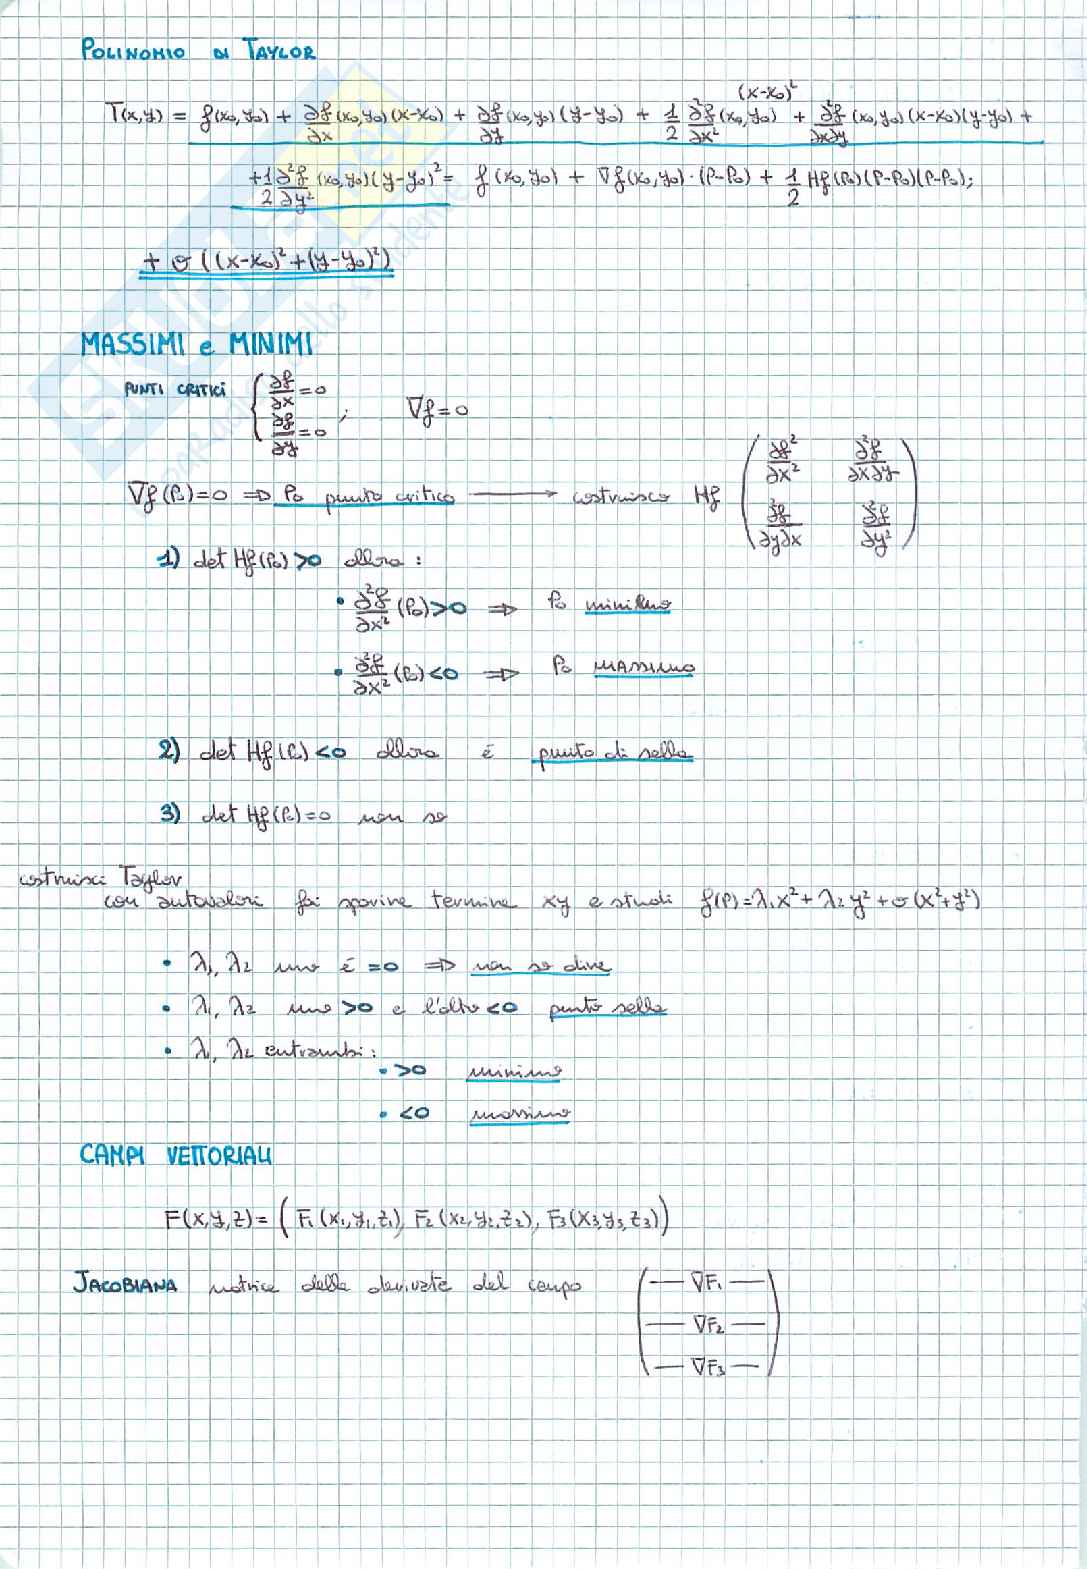 POLINOMIO DI TAYLOR
(x-x₀)²
T(x,y) = f(x₀,y₀) + ∂f/∂x (x₀,y₀)(x-x₀) + ∂f/∂y (x₀,y₀)(y-y₀) + 1/2 ∂²f/∂x² (x₀,y₀) + ∂²f/∂x∂y (x₀,y₀)(x-x₀)(y-y₀) +
+ 1/2 ∂²f/∂y² (x₀,y₀)(y-y₀)² = f(x₀,y₀) + ∇f(x₀,y₀)·(P-P₀) + 1/2 Hf(P₀)(P-P₀)(P-P₀);
+ σ((x-x₀)²+(y-y₀)²)
MASSIMI e MINIMI
PUNTI CRITICI { ∂f/∂x = 0 ; ∇f = 0
∂f/∂y = 0
∇f(P₀)=0 ⇒ P₀ punto critico ⟶ costruisco Hf ( ∂f²/∂x² ∂²f/∂x∂y
∂²f/∂y∂x ∂²f/∂y² )
1) det Hf(P₀)>0 allora:
• ∂²f/∂x² (P₀)>0 ⇒ P₀ minimo
• ∂²f/∂x² (P₀)<0 ⇒ P₀ MASSIMO
2) det Hf(P₀)<0 allora é punto di sella
3) det Hf(P₀)=0 non so
costruisci Taylor
con autovalori fai sparire termine xy e studi f(P)=λ₁x²+λ₂y²+σ(x²+y²)
• λ₁, λ₂ uno é =0 ⇒ non so dire
• λ₁, λ₂ uno >0 e l'altro <0 punto sella
• λ₁, λ₂ entrambi:
• >0 minimo
• <0 massimo
CAMPI VETTORIALI
F(x,y,z) = (F₁(x₁,y₁,z₁), F₂(x₂,y₂,z₂), F₃(x₃,y₃,z₃))
JACOBIANA matrice delle derivate del campo ( — ∇F₁ —
— ∇F₂ —
— ∇F₃ — )